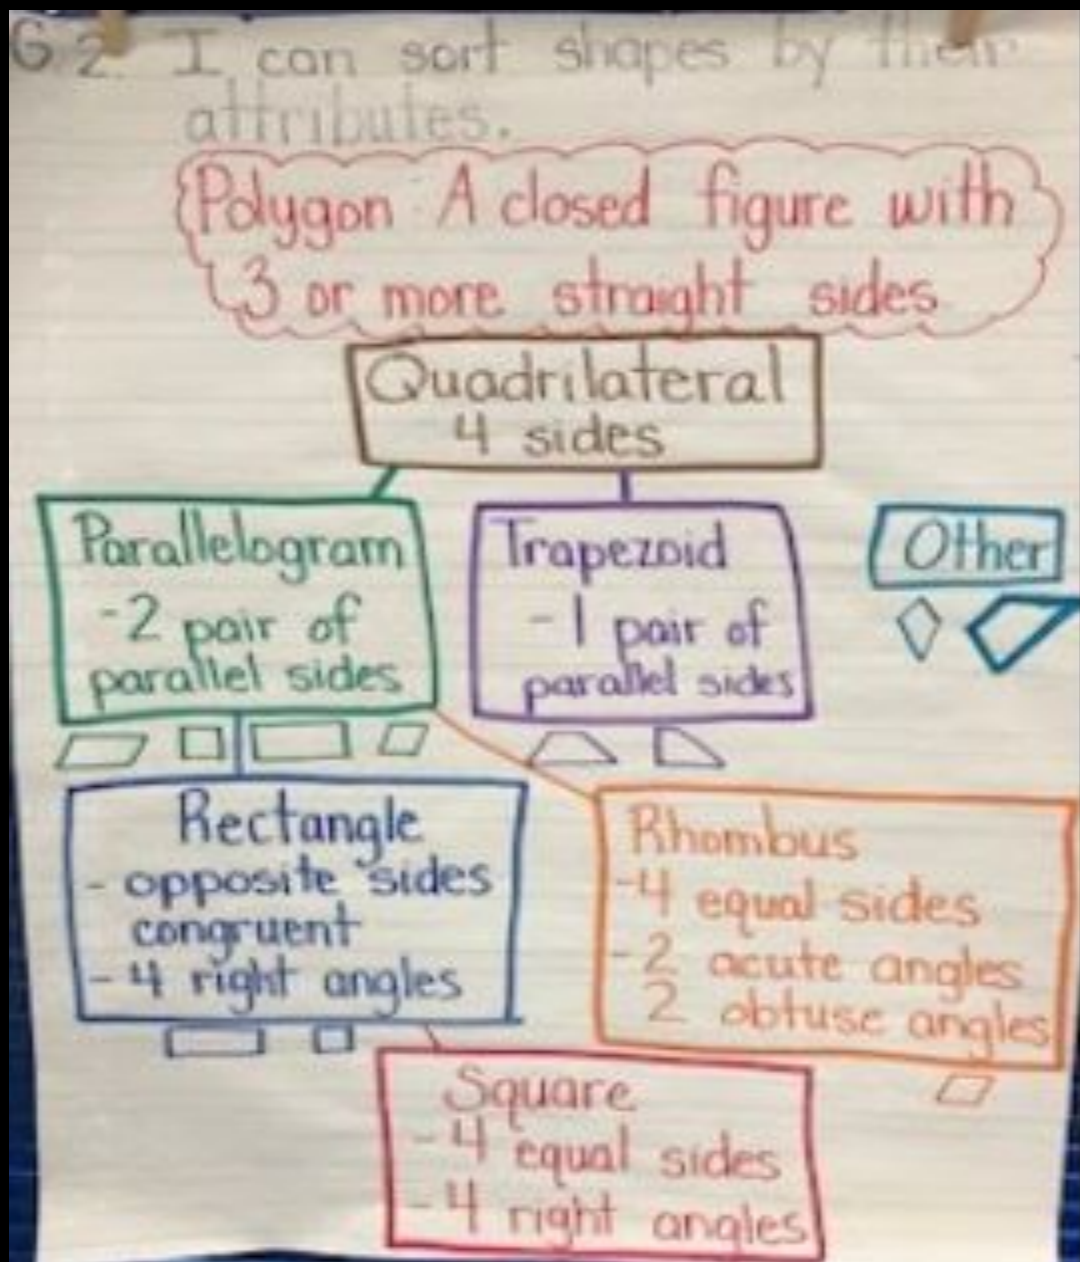 G.2. I can sort shapes by their
attributes.
Polygon: A closed figure with
3 or more straight sides
Quadrilateral
4 sides
Parallelogram
-2 pair of
parallel sides
Trapezoid
-1 pair of
parallel sides
Other
Rectangle
- opposite sides
congruent
-4 right angles
Rhombus
-4 equal sides
-2 acute angles
2 obtuse angles
Square
-4 equal sides
-4 right angles